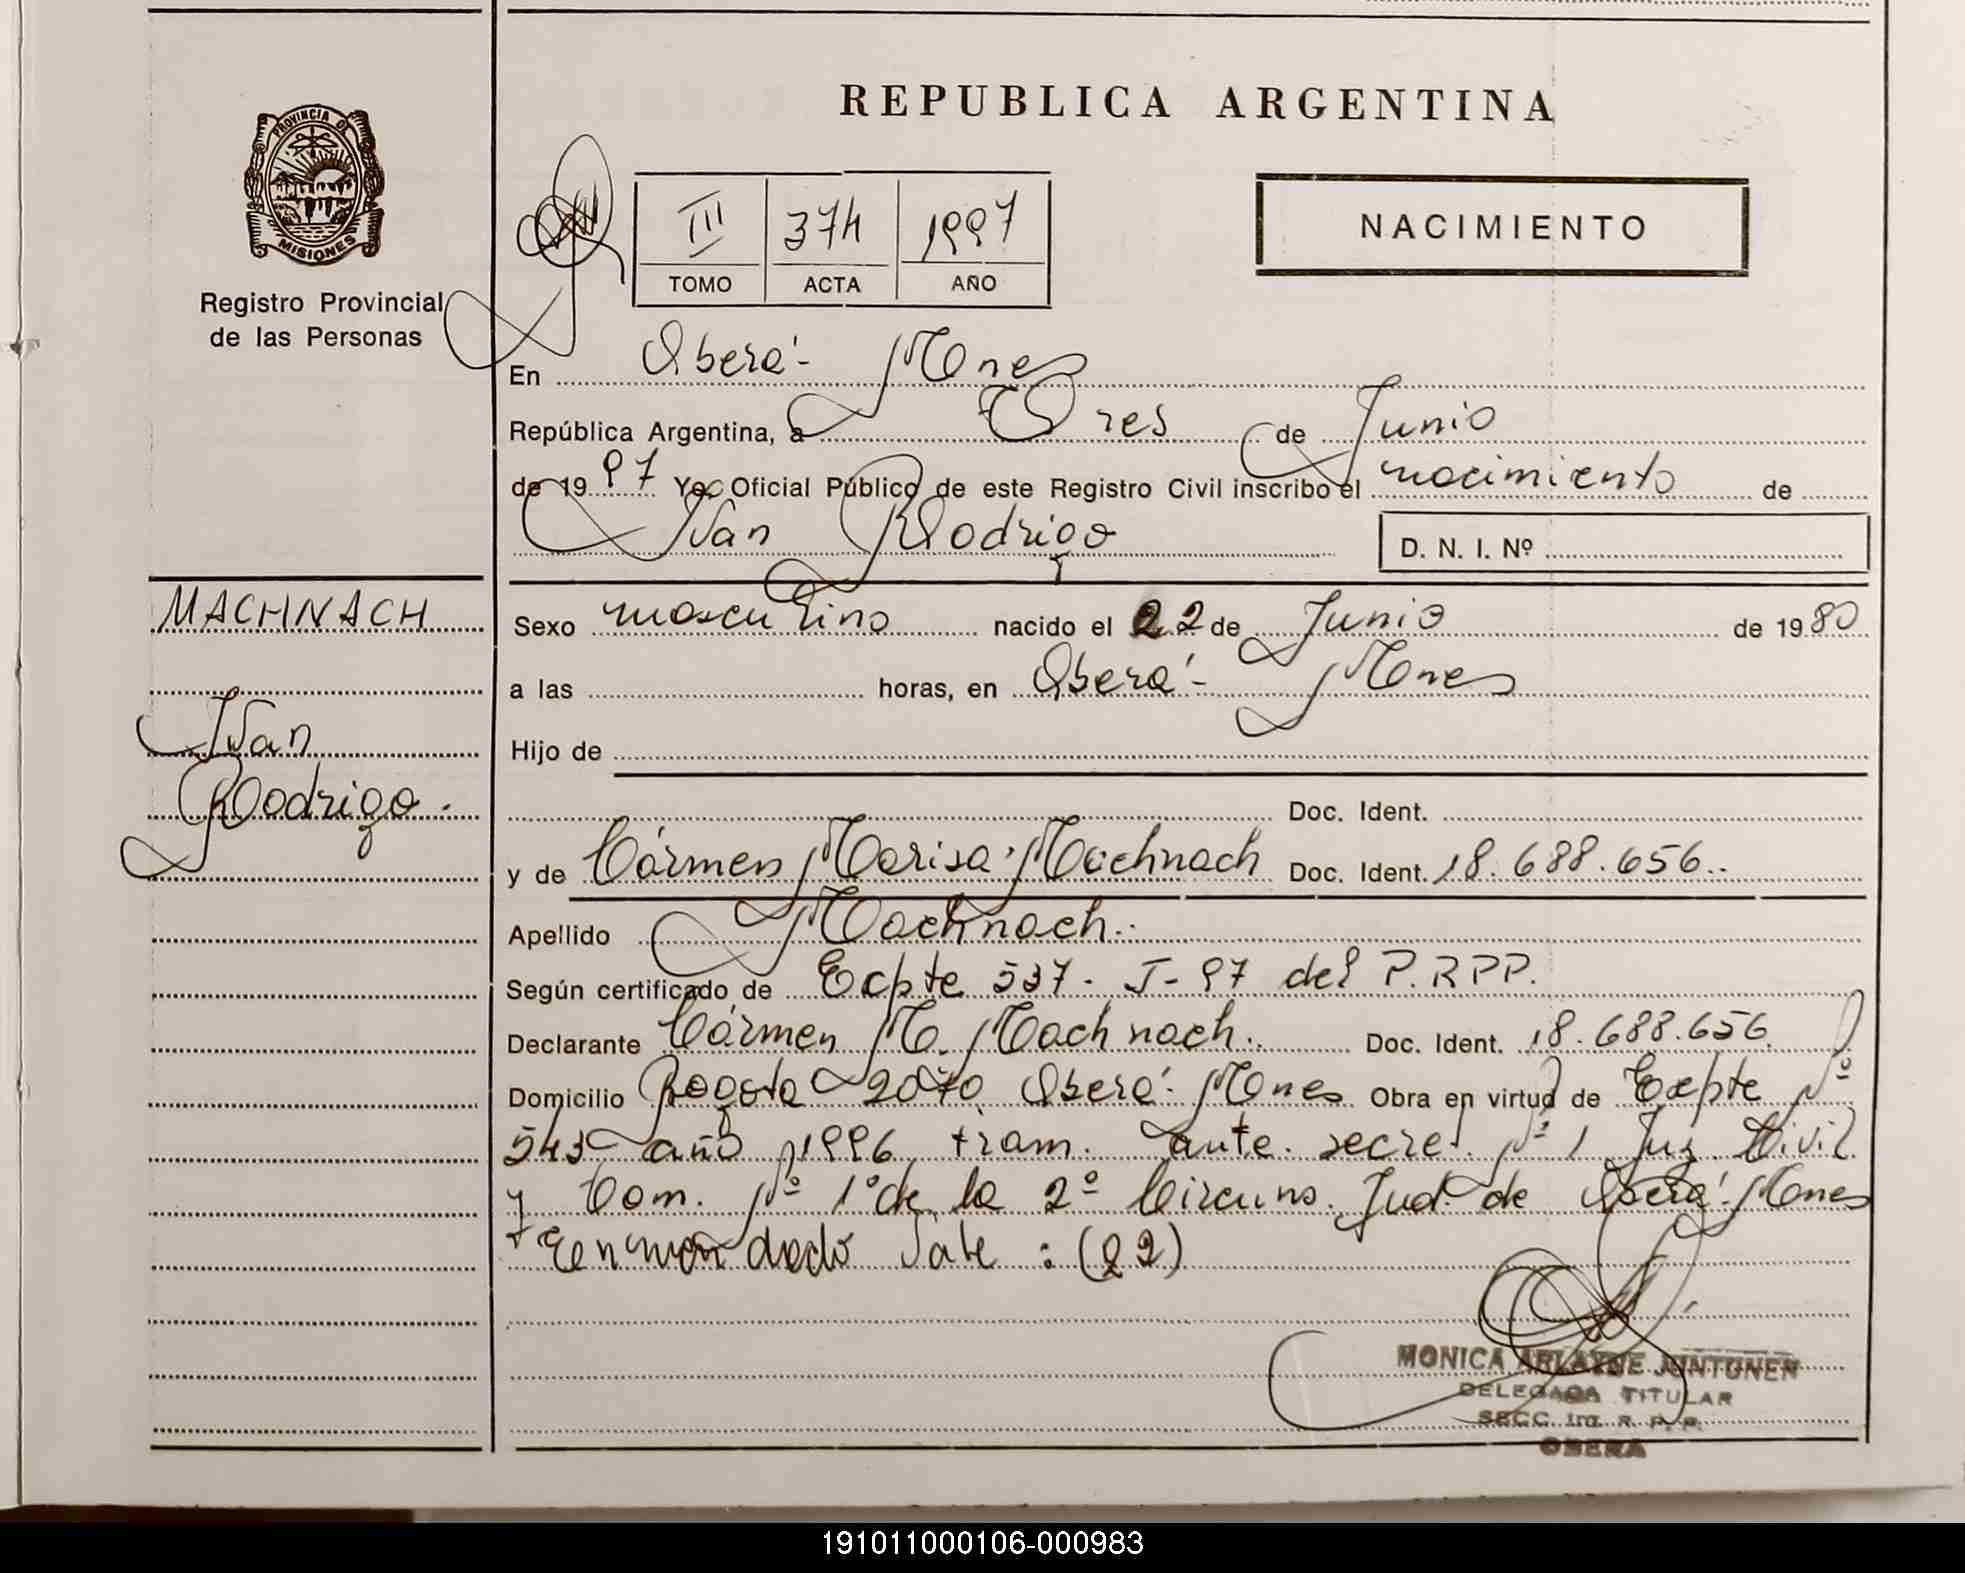 REPUBLICA ARGENTINA
PROVINCIA DE
MISIONES
Registro Provincial
de las Personas
III 374 1997
TOMO ACTA AÑO
NACIMIENTO
En Oberá - Mnes
República Argentina, a Tres de Junio
de 1997 Yo, Oficial Público de este Registro Civil inscribo el nacimiento de
Iván Rodrigo D. N. I. Nº
MACHNACH
Iván
Rodrigo.
Sexo masculino nacido el 22 de Junio de 1980
a las horas, en Oberá - Mnes
Hijo de
Doc. Ident.
y de Cármen Marisa Machnach Doc. Ident. 18.688.656.
Apellido Machnach.
Según certificado de Expte 537 - J - 97 del P.R.P.P.
Declarante Cármen M. Machnach. Doc. Ident. 18.688.656
Domicilio Bogota 2070 Oberá - Mnes Obra en virtud de Expte Nº
543 año 1996 tram. ante. secre. Nº 1 Juz. Civil
y Com. Nº 1º de la 2º Circuns. Jud. de Oberá - Mnes
Enmendado Vale : (22)
MONICA ARLAYNE JUNTUNEN
DELEGADA TITULAR
SECC. 1ra. R. P. P.
OBERA
191011000106-000983